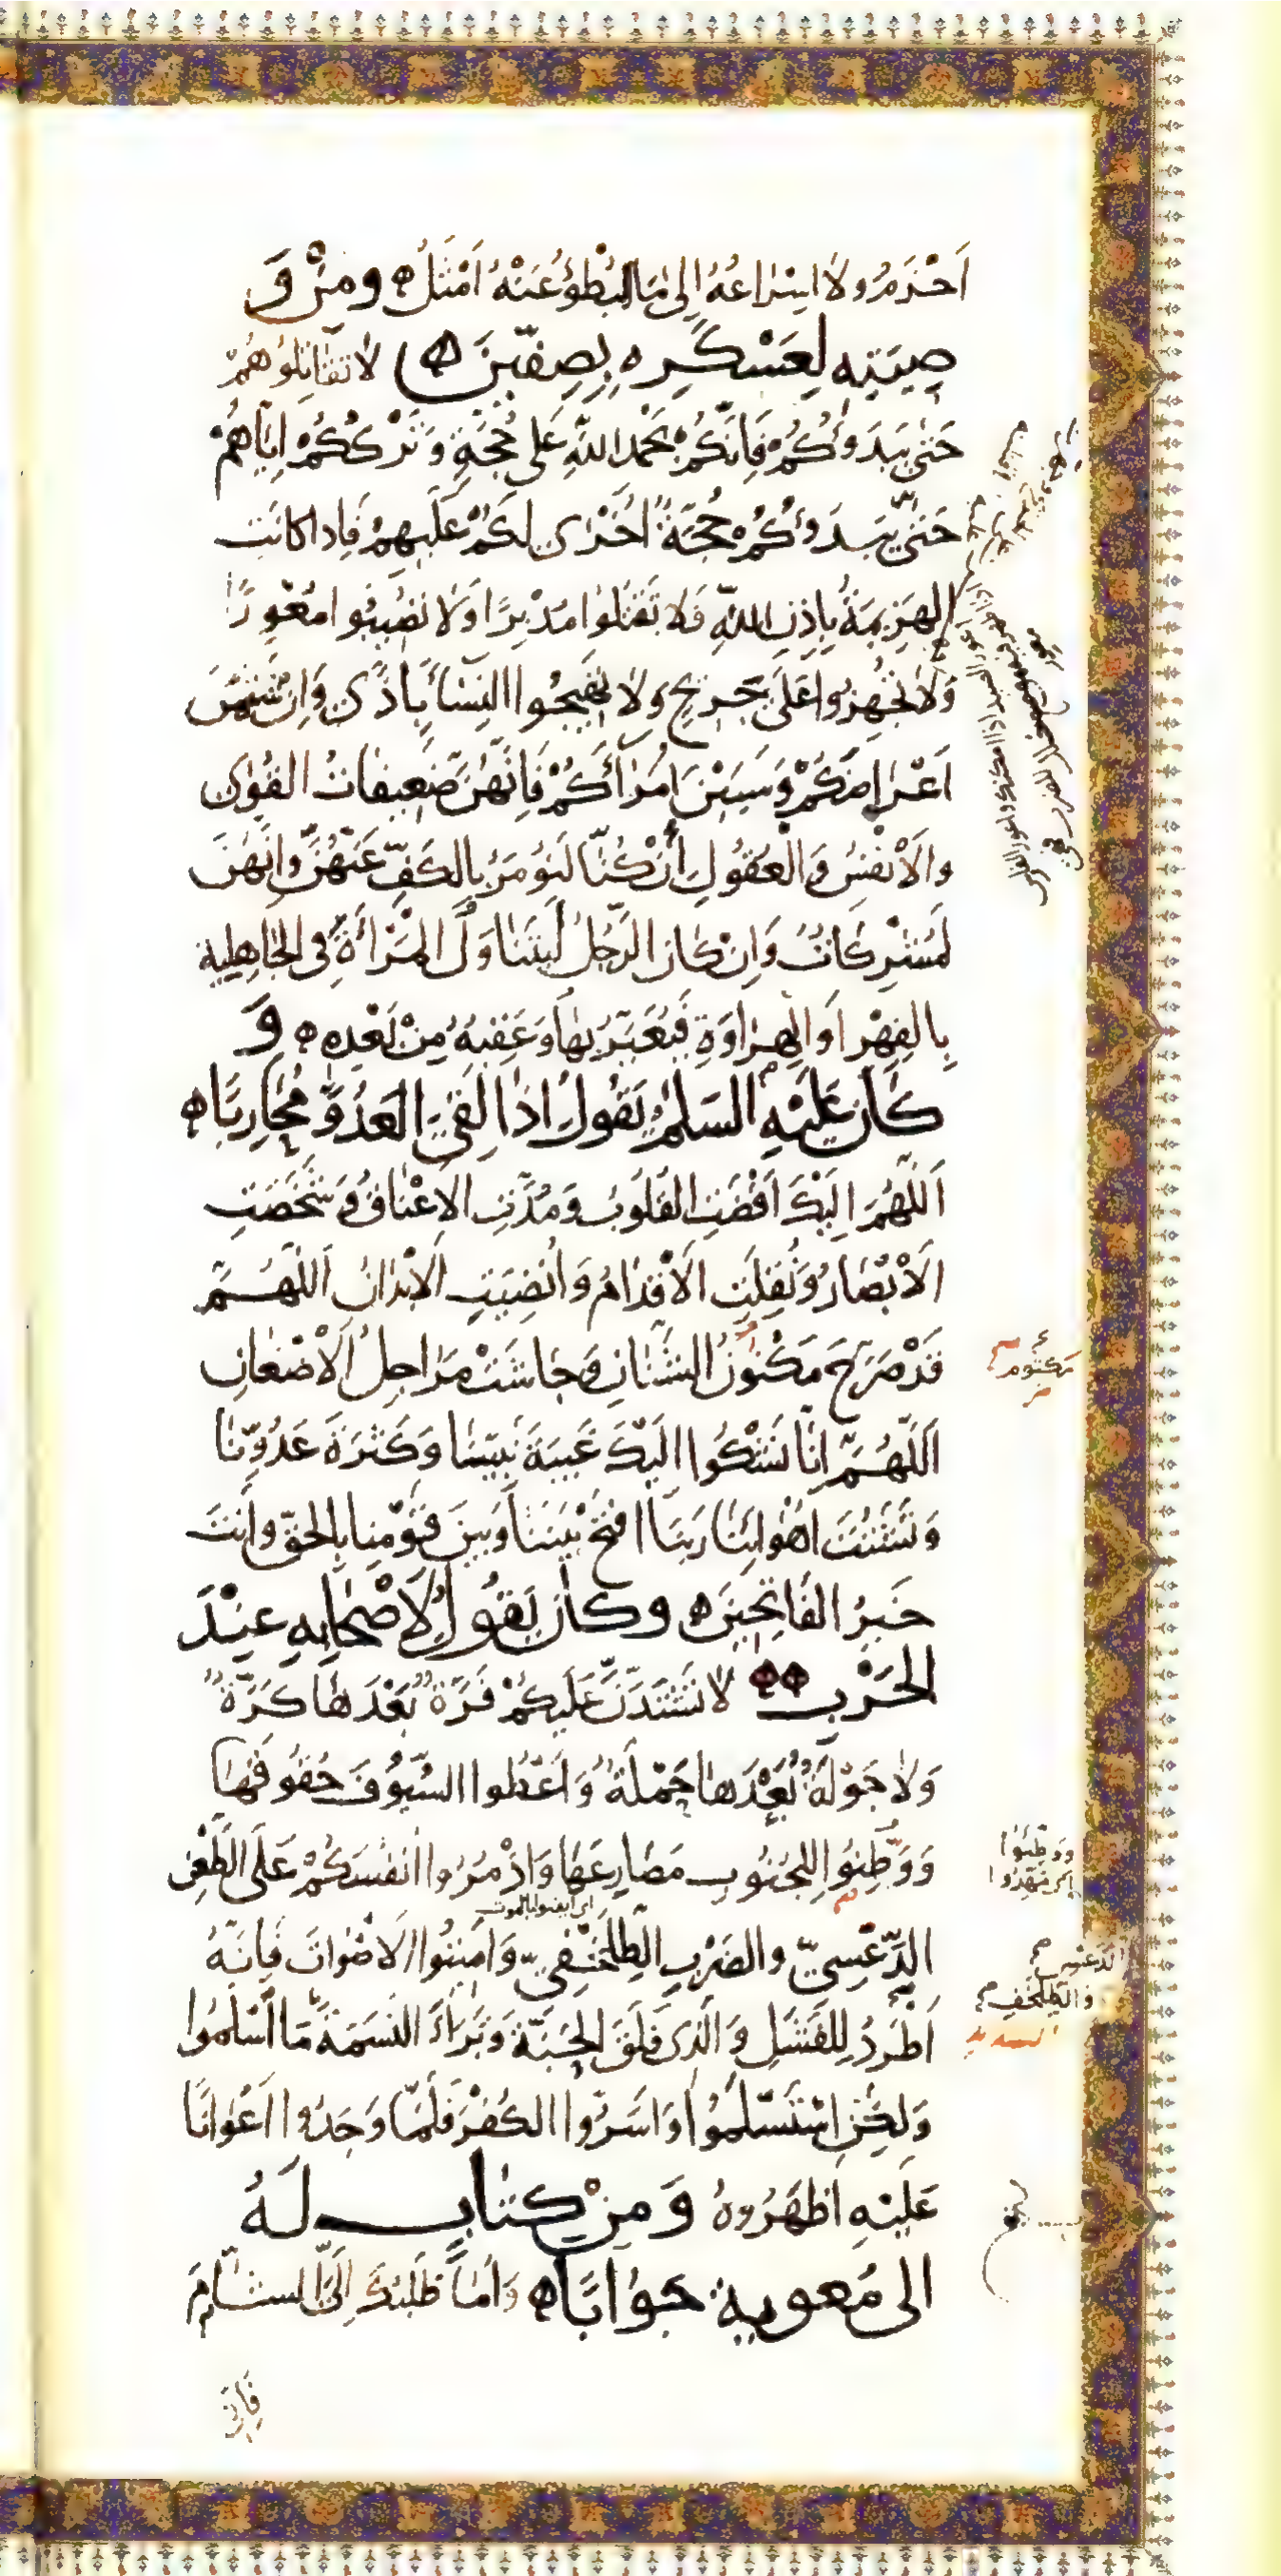 اَحْزَمُ ولا اسْرَاعُهُ الى مَا البُطْؤُ عَنْهُ اَمْثَلُ ه ومِنْ وَ
صِيَتِهِ لِعَسْكَرِه بِصِفّينَ ه لا تقَاتِلُوهُمْ
حَتى يَبْدَؤُكُمْ فَاِنَّكُمْ بحَمْدِ اللهِ عَلى حُجَّةٍ وَتَرْكُكُمْ اِيّاهُمْ
حَتى يَبْدَؤُكُمْ حُجَّةٌ اُخْرَى لكُمْ عَلَيهِمْ فَاِذا كانَت
الهَزِيمَةُ بِاِذنِ اللهِ فَلا تَقتُلوا مُدْبِرًا وَلا تُصِيبُوا مُعْوِرًا
وَلا تُجْهِزُوا عَلَى جَرِيحٍ ولا تُهيجُوا النِسَاءَ بِاَذًى وَاِن شَتَمْنَ
اَعْرَاضَكُمْ وَسَبَبْنَ اُمَرَاءَكُمْ فَاِنَّهُنَّ ضَعِيفاتُ القُوٰى
والاَنْفُسِ وَالْعُقولِ اِنْ كُنّا لَنُؤمَرُ بالكَفِّ عَنْهُنَّ وانّهُنَّ
لَمُشْرِكاتٌ وَاِنْ كانَ الرَّجُلُ لَيَتَنَاوَلُ المَرْأةَ فى الجَاهِلِية
بِالفِهْرِ اَوالهِرَاوَةِ فَيُعَيَّرُ بهَا وَعَقِبُهُ مِنْ بَعْدِه ه وَ
كانَ عَلَيْهِ السَلمُ يَقُولُ اذا لَقِىَ العَدُوَّ مُحَارِبًا ه
اَللّهُمَّ اِلَيْكَ اَفْضَتِ القُلُوبُ وَمُدَّتِ الاعْناقُ وَشَخَصَتِ
الاَبْصَارُ وَنُقِلَتِ الاَقْدَامُ وَاُنْضِيَتِ الابْدَانُ اَللّهُمَّ
قَدْ صَرَّحَ مَكْنُونُ الشَّنَانِ وَجَاشَتْ مَرَاجِلُ الاَضْغانِ
مَكتُوم
اَللّهُمَّ اِنّا نَشْكُوا اليْكَ غَيبَةَ نَبِيّنَا وَكَثرَةَ عَدُوِّنَا
وَتَشَتُّتَ اهْوائِنَا رَبَنَا افْتَحْ بَيْنَنَا وَبَيْنَ قَوْمِنا بِالحَقّ وانتَ
خَيرُ الفَاتحِينَ ه وكانَ يَقُولُ لاَصْحَابِهِ عِنْدَ
الحَرْبِ ه ه لا تَشْتَدَّنَّ عَلَيكُمْ فَرَّةٌ بَعْدَهَا كَرَّةٌ
وَلا جَوْلةٌ بَعْدَهَا حَمْلَةٌ وَاَعْطُوا السُّيُوفَ حُقُوقَهَا
وَوَطِّنُوا لِلجُنُوبِ مَصَارِعَهَا وَاذْمُرُوا انفُسَكُمْ عَلَى الطَّعْنِ
وَوَطِّئُوا
اى مَهِّدُوا
اى ايقنوا بالموت
الدَّعْسِيّ والضَرْبِ الطِّلَحْفِيّ وَاَمِيتُوا الاَصْواتَ فَاِنّهُ
الدَعْسِى
وَالطِّلَحْفِى
الشديد
اَطْرَدُ لِلفَشَلِ وَالَّذى فَلَقَ الحَبّةَ وَبَرَأَ النَّسَمَةَ مَا اَسْلَمُوا
وَلكِنِ اسْتَسْلَمُوا وَاَسَرُّوا الكُفْرَ فَلَمّا وَجَدُوا اَعْوَانًا
عَلَيْهِ اَظْهَرُوهُ وَمِنْ كِتابٍ لَهُ
الى مُعويةَ جَوَابًا ه وَاَمّا طَلَبُكَ اِلَىَّ الشَّامَ
فَاِنّى